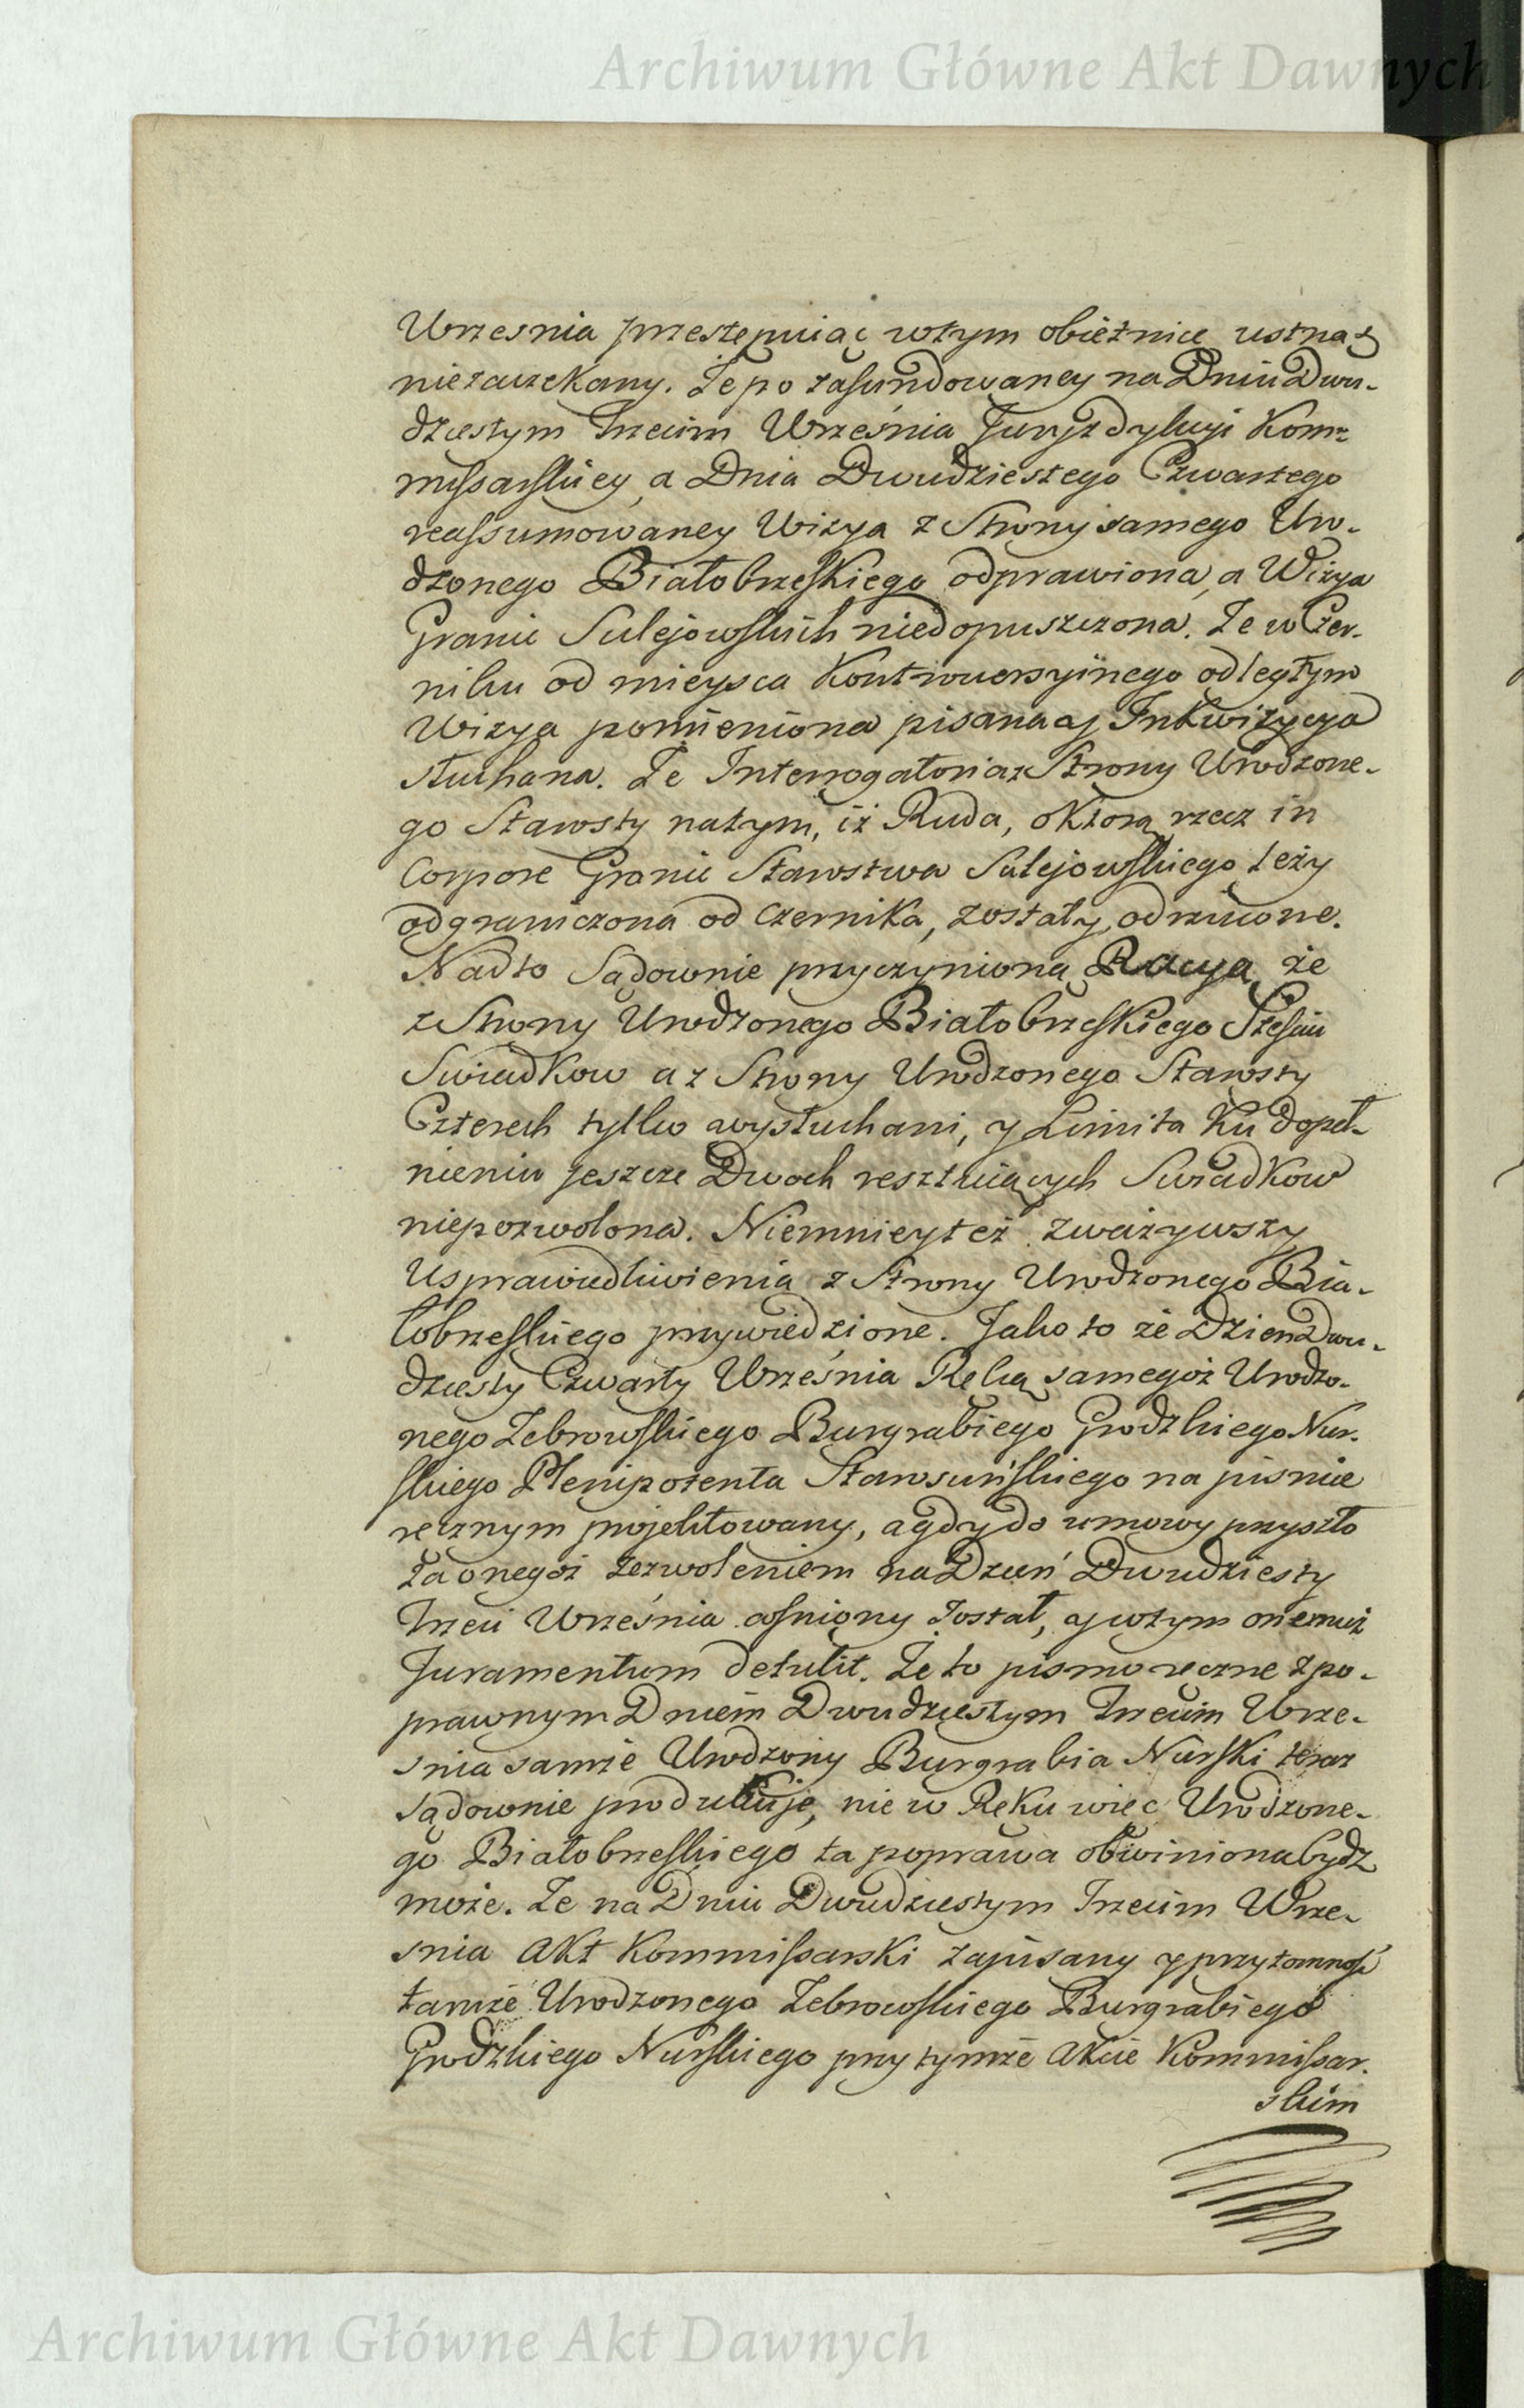 Archiwum Główne Akt Dawnych
Wrzesnia przestempuiąc wtym obietnicę ustną
niezaczekany. Że po zafundowaney na Dniu Dwu-
dziestym Trzecim Września Juryzdykcyi Kom=
missarskiey, a Dnia Dwudziestego Czwartego
reassumowaney Wizya z Strony samego Uro-
dzonego Białobrzeskiego odprawiona, a Wizya
Granic Sulejowskich niedopuszczona. Że w Czer-
niku od mieysca Kontrowersyinego odległym
Wizya pomieniona pisana aj Inkwizycya
słuchana. Że Interrogatoria z Strony Urodzone-
go Starosty natym, iż Ruda, oktorą rzecz in
Corpore Granic Starostwa Sulejowskiego leży
odgraniczona od Czernika, zostały odrzucone.
Nadto Sądownie przyczynioną Racyą że
z Strony Urodzonego Białobrzeskiego Sześciu
Swiadkow a z Strony Urodzonego Starosty
Czterech tylko wysłuchani, y Limita Ku dopeł-
nieniu jeszcze Dwoch resztuiących Swiadkow
niepozwolona. Niemnieytez zważywszy
Usprawiedliwienia z Strony Urodzonego Bia-
łobrzeskiego przywiedzione. Jako to że Dzien Dwu-
dziesty Czwarty Września Ręką samegoż Urodzo-
nego Zebrowskiego Burgrabiego Grodzkiego Nur-
skiego Plenipotenta Starościńskiego na pismie
ręcznym projektowany, agdy do umowy przyszło
za onegoż zezwoleniem na Dzień Dwudziesty
Trzeci Września cofniony został, aj wtym onemuż
Juramentum detulit. Że to pismo ręczne z po-
prawnym Dniem Dwudziestym Trzecim Wrze-
snia samże Urodzony Burgrabia Nurski teraz
sądownie produkuje, nie w Ręku więc Urodzone-
go Białobrzeskiego ta poprawa obwiniona bydz
może. Że na Dniu Dwudziestym Trzecim Wrze-
snia Akt Kommissarski zapisany y przytomność
tamże Urodzonego Zebrowskiego Burgrabiego
Grodzkiego Nurskiego przy tymże Akcie Kommissar-
skim
Archiwum Główne Akt Dawnych